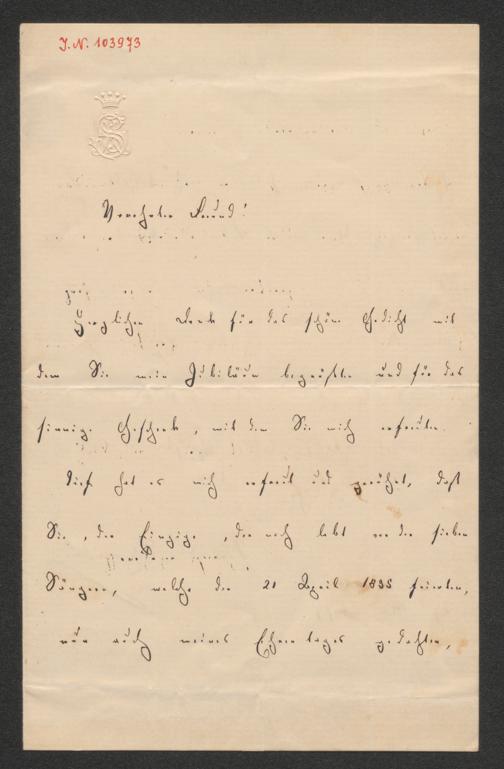 J. N. 103973
Verehrter Freund!
Herzlichen Dank für das schöne Gedicht mit
dem Sie mein Jubiläum begrüßten und für das
sinnige Geschenk, mit dem Sie mich erfreuten.
Tief hat es mich erfreut und gerührt, daß
Sie, der Einzige, der noch lebt von den sieben
Sängern, welche den 21 April 1835 feierten,
nun auch meines Ehrentages gedachten,